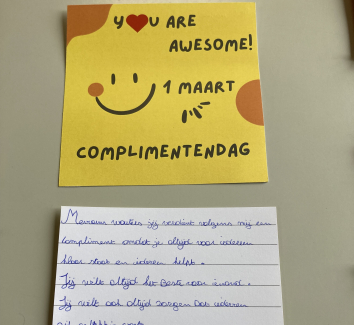 YOU ARE
AWESOME!
1 MAART
COMPLIMENTENDAG
jij verdient volgens mij een
compliment omdat je altijd voor iedereen
klaar staat en iedereen helpt.
Jij wilt altijd het beste voor
Jij wilt ook altijd zorgen dat iedereen